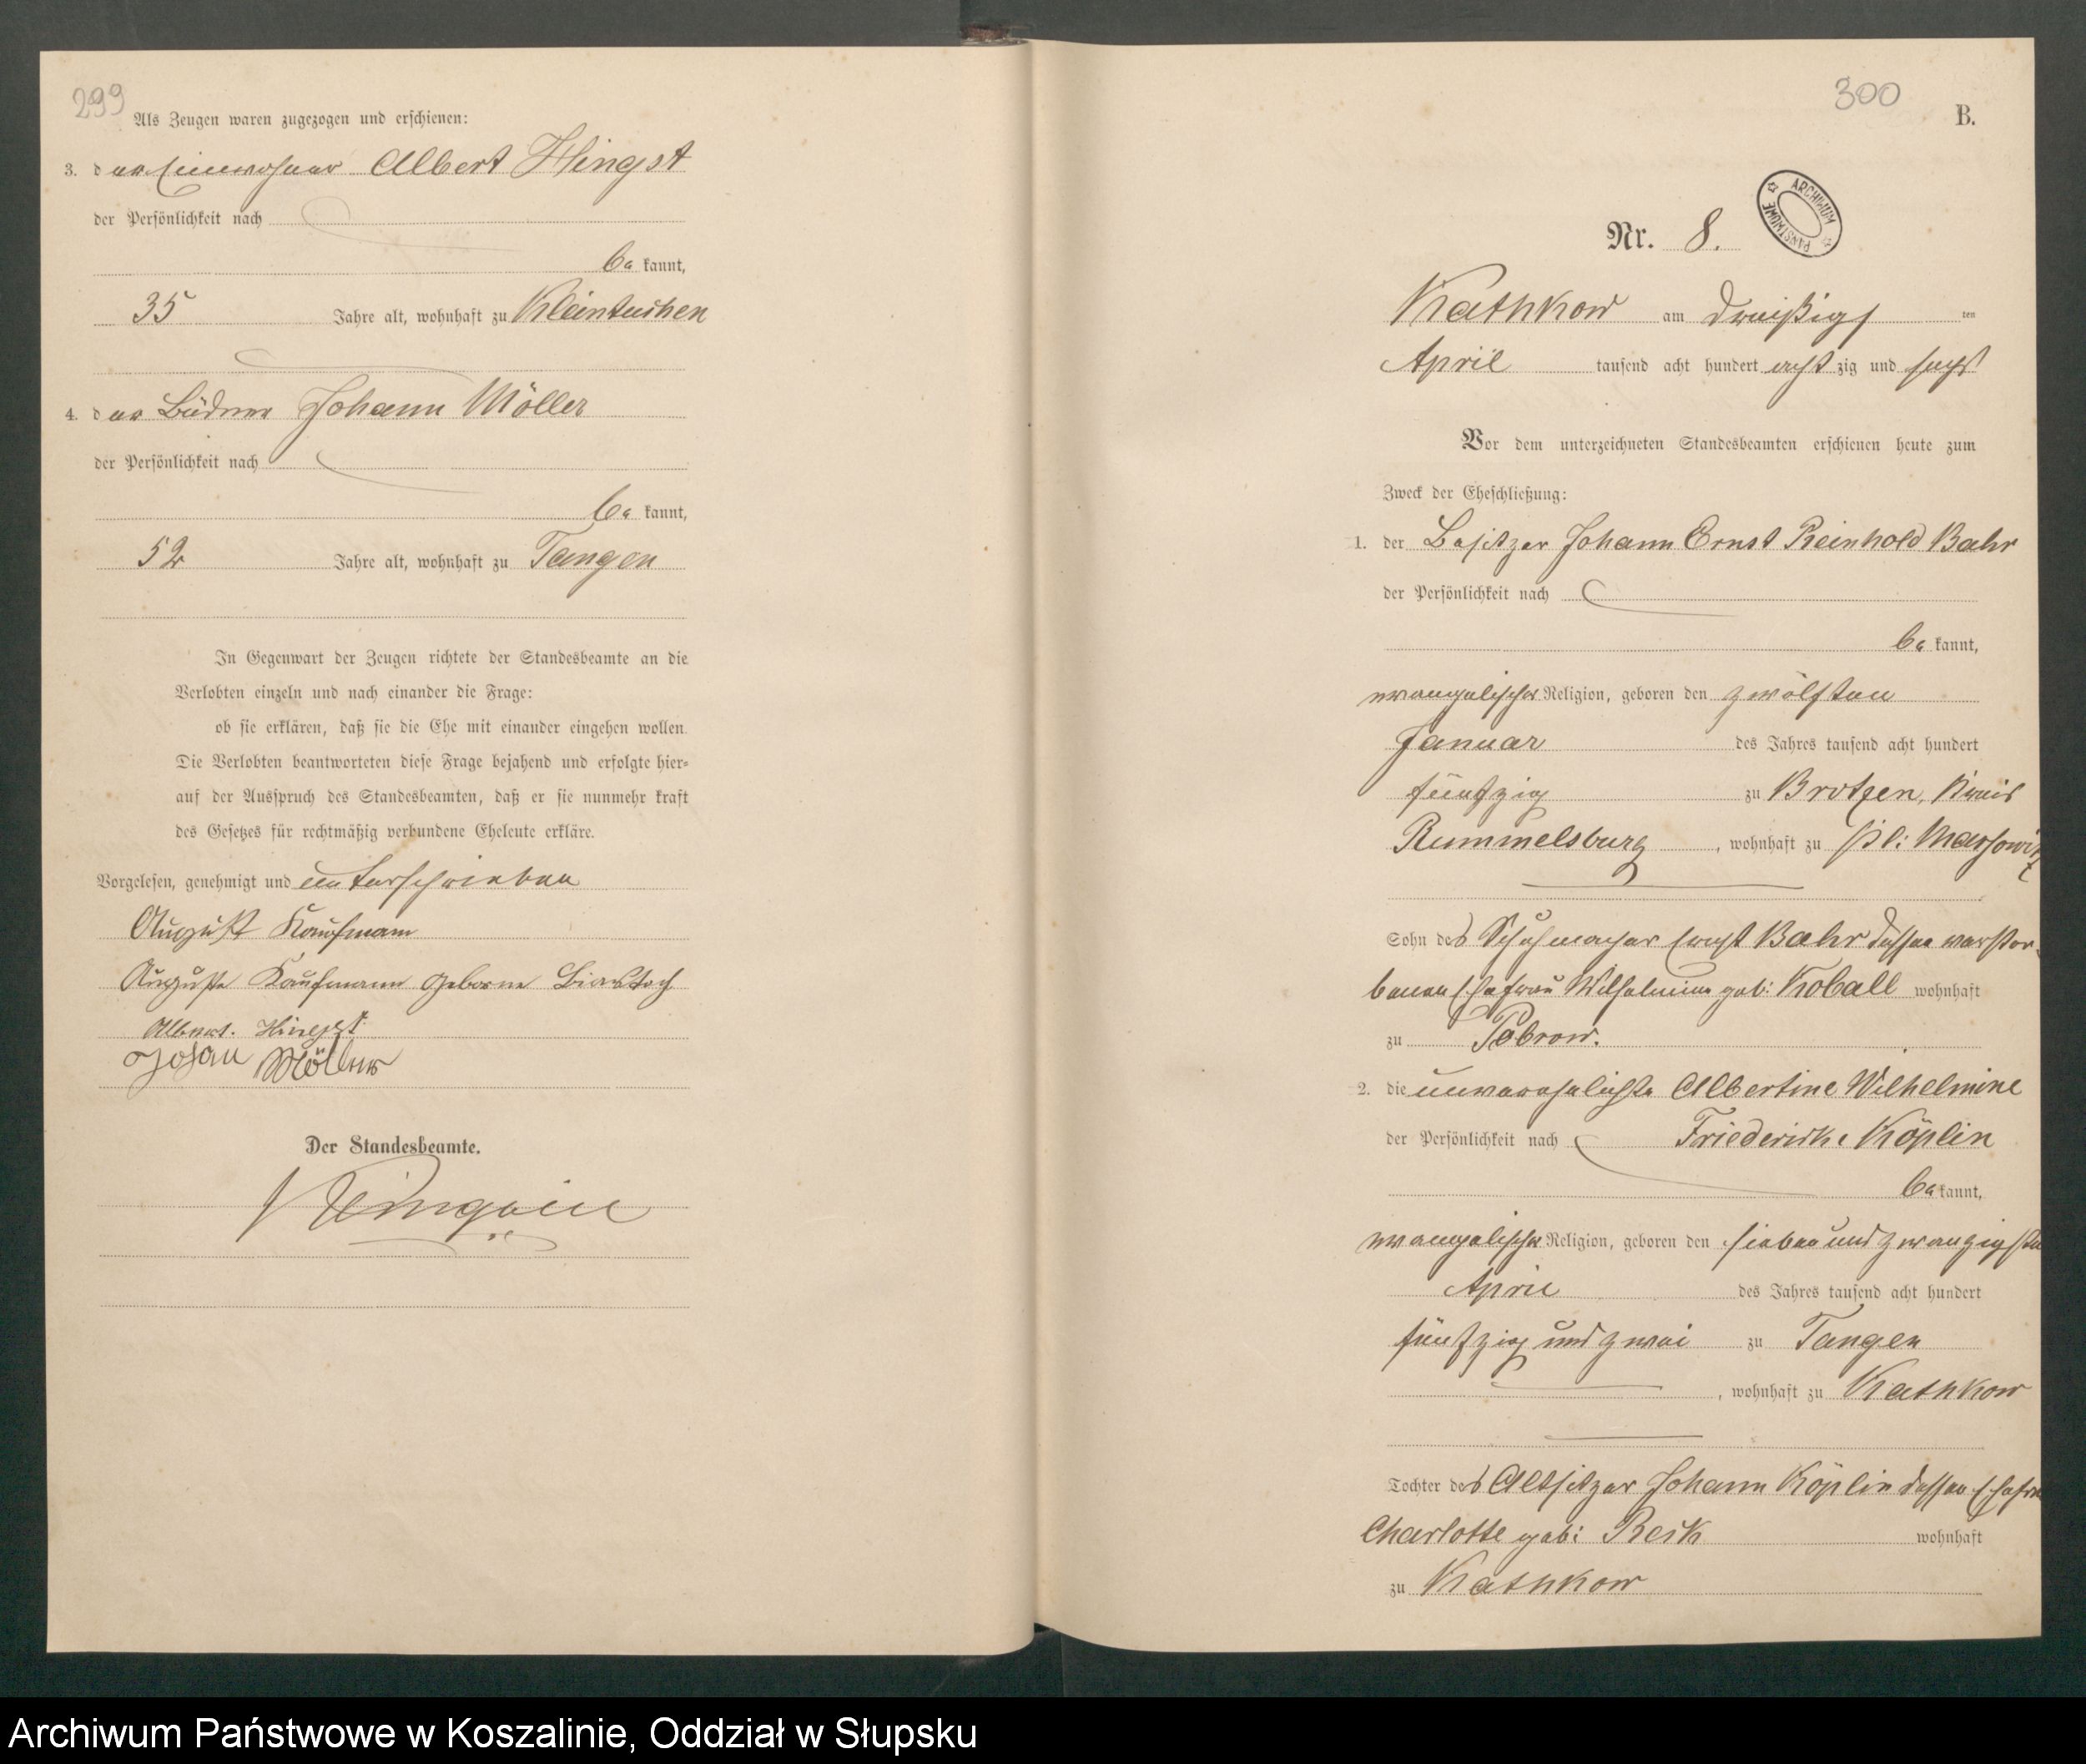 299
Als Zeugen waren zugezogen und erschienen:
3. der Einwohner Albert Hingst
der Persönlichkeit nach
be kannt,
35 Jahre alt, wohnhaft zu Kleintuchen
4. der Büdner Johann Möller
der Persönlichkeit nach
be kannt,
52 Jahre alt, wohnhaft zu Tangen
In Gegenwart der Zeugen richtete der Standesbeamte an die
Verlobten einzeln und nach einander die Frage:
ob sie erklären, daß sie die Ehe mit einander eingehen wollen.
Die Verlobten beantworteten diese Frage bejahend und erfolgte hier-
auf der Ausspruch des Standesbeamten, daß er sie nunmehr kraft
des Gesetzes für rechtmäßig verbundene Eheleute erkläre.
Vorgelesen, genehmigt und unterschrieben
August Kaufmann
Auguste Kaufmann geborne
Albert. Hingst
Johan Möller
Der Standesbeamte.
300
B.
ARCHIWUM PAŃSTWOWE
Nr. 8.
Kathkow am dreißigs ten
April tausend acht hundert acht zig und sechs
Vor dem unterzeichneten Standesbeamten erschienen heute zum
Zweck der Eheschließung:
1. der Besitzer Johann Ernst Reinhold Bahr
der Persönlichkeit nach
be kannt,
evangelischer Religion, geboren den zwölften
Januar des Jahres tausend acht hundert
fünfzig zu Brotzen, Kreis
Rummelsburg, wohnhaft zu Kl: Massowitz
Sohn des Schuhmacher Ernst Bahr dessen verstor-
benen Ehefrau Wilhelmine geb: Koball wohnhaft
zu Pobrow.
2. die unverehelichte Albertine Wilhelmine
der Persönlichkeit nach Friederike Köplin
be kannt,
evangelischer Religion, geboren den siebenundzwanzigsten
April des Jahres tausend acht hundert
fünfzig und zwei zu Tangen
, wohnhaft zu Kathkow
Tochter des Altsitzer Johann Köplin dessen Ehefrau
Charlotte geb: Reik wohnhaft
zu Kathkow
Archiwum Państwowe w Koszalinie, Oddział w Słupsku